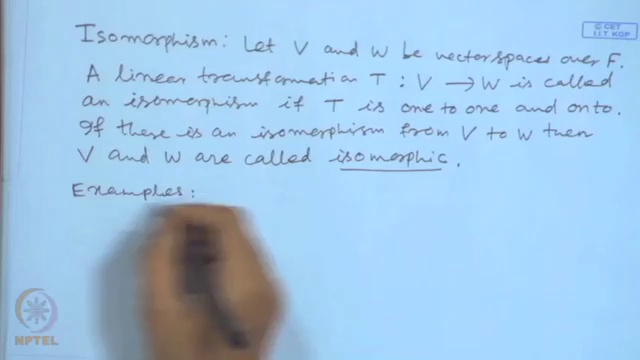 © CET
I.I.T. KGP
Isomorphism: Let V and W be vectorspaces over F.
A linear transformation T : V → W is called
an isomorphism if T is one to one and onto.
If there is an isomorphism from V to W then
V and W are called isomorphic.
Examples:
NPTEL